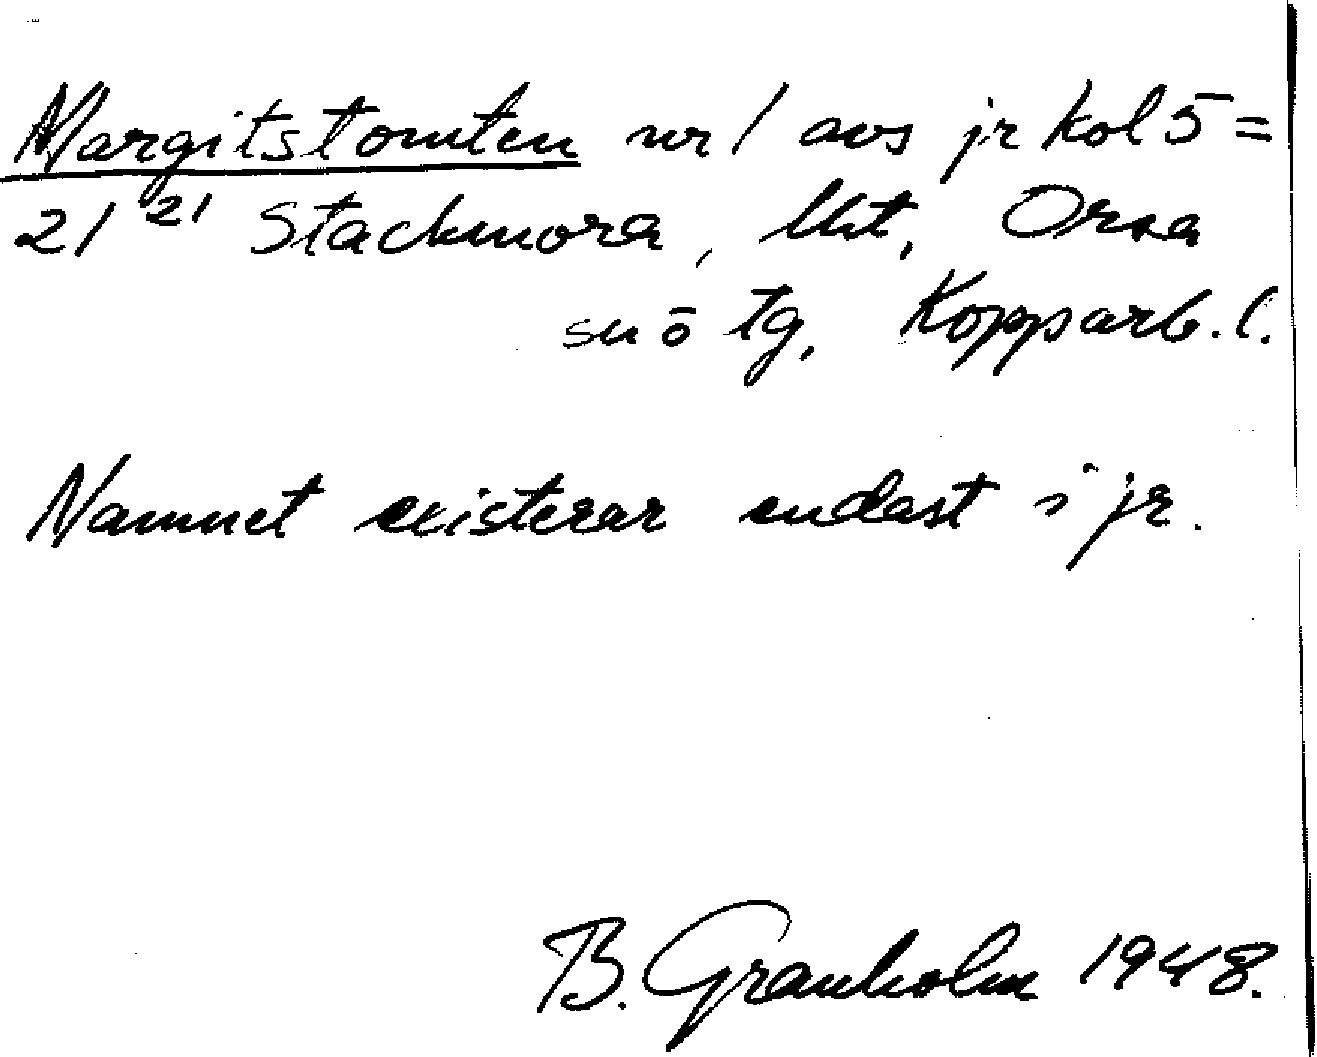 Margitstomten nr 1 avs jr kol 5 =
21²¹ Stackmora, lht, Orsa
sn ö tg, Kopparb. l.
Namnet existerar endast i jr.
B. Granholm 1948.